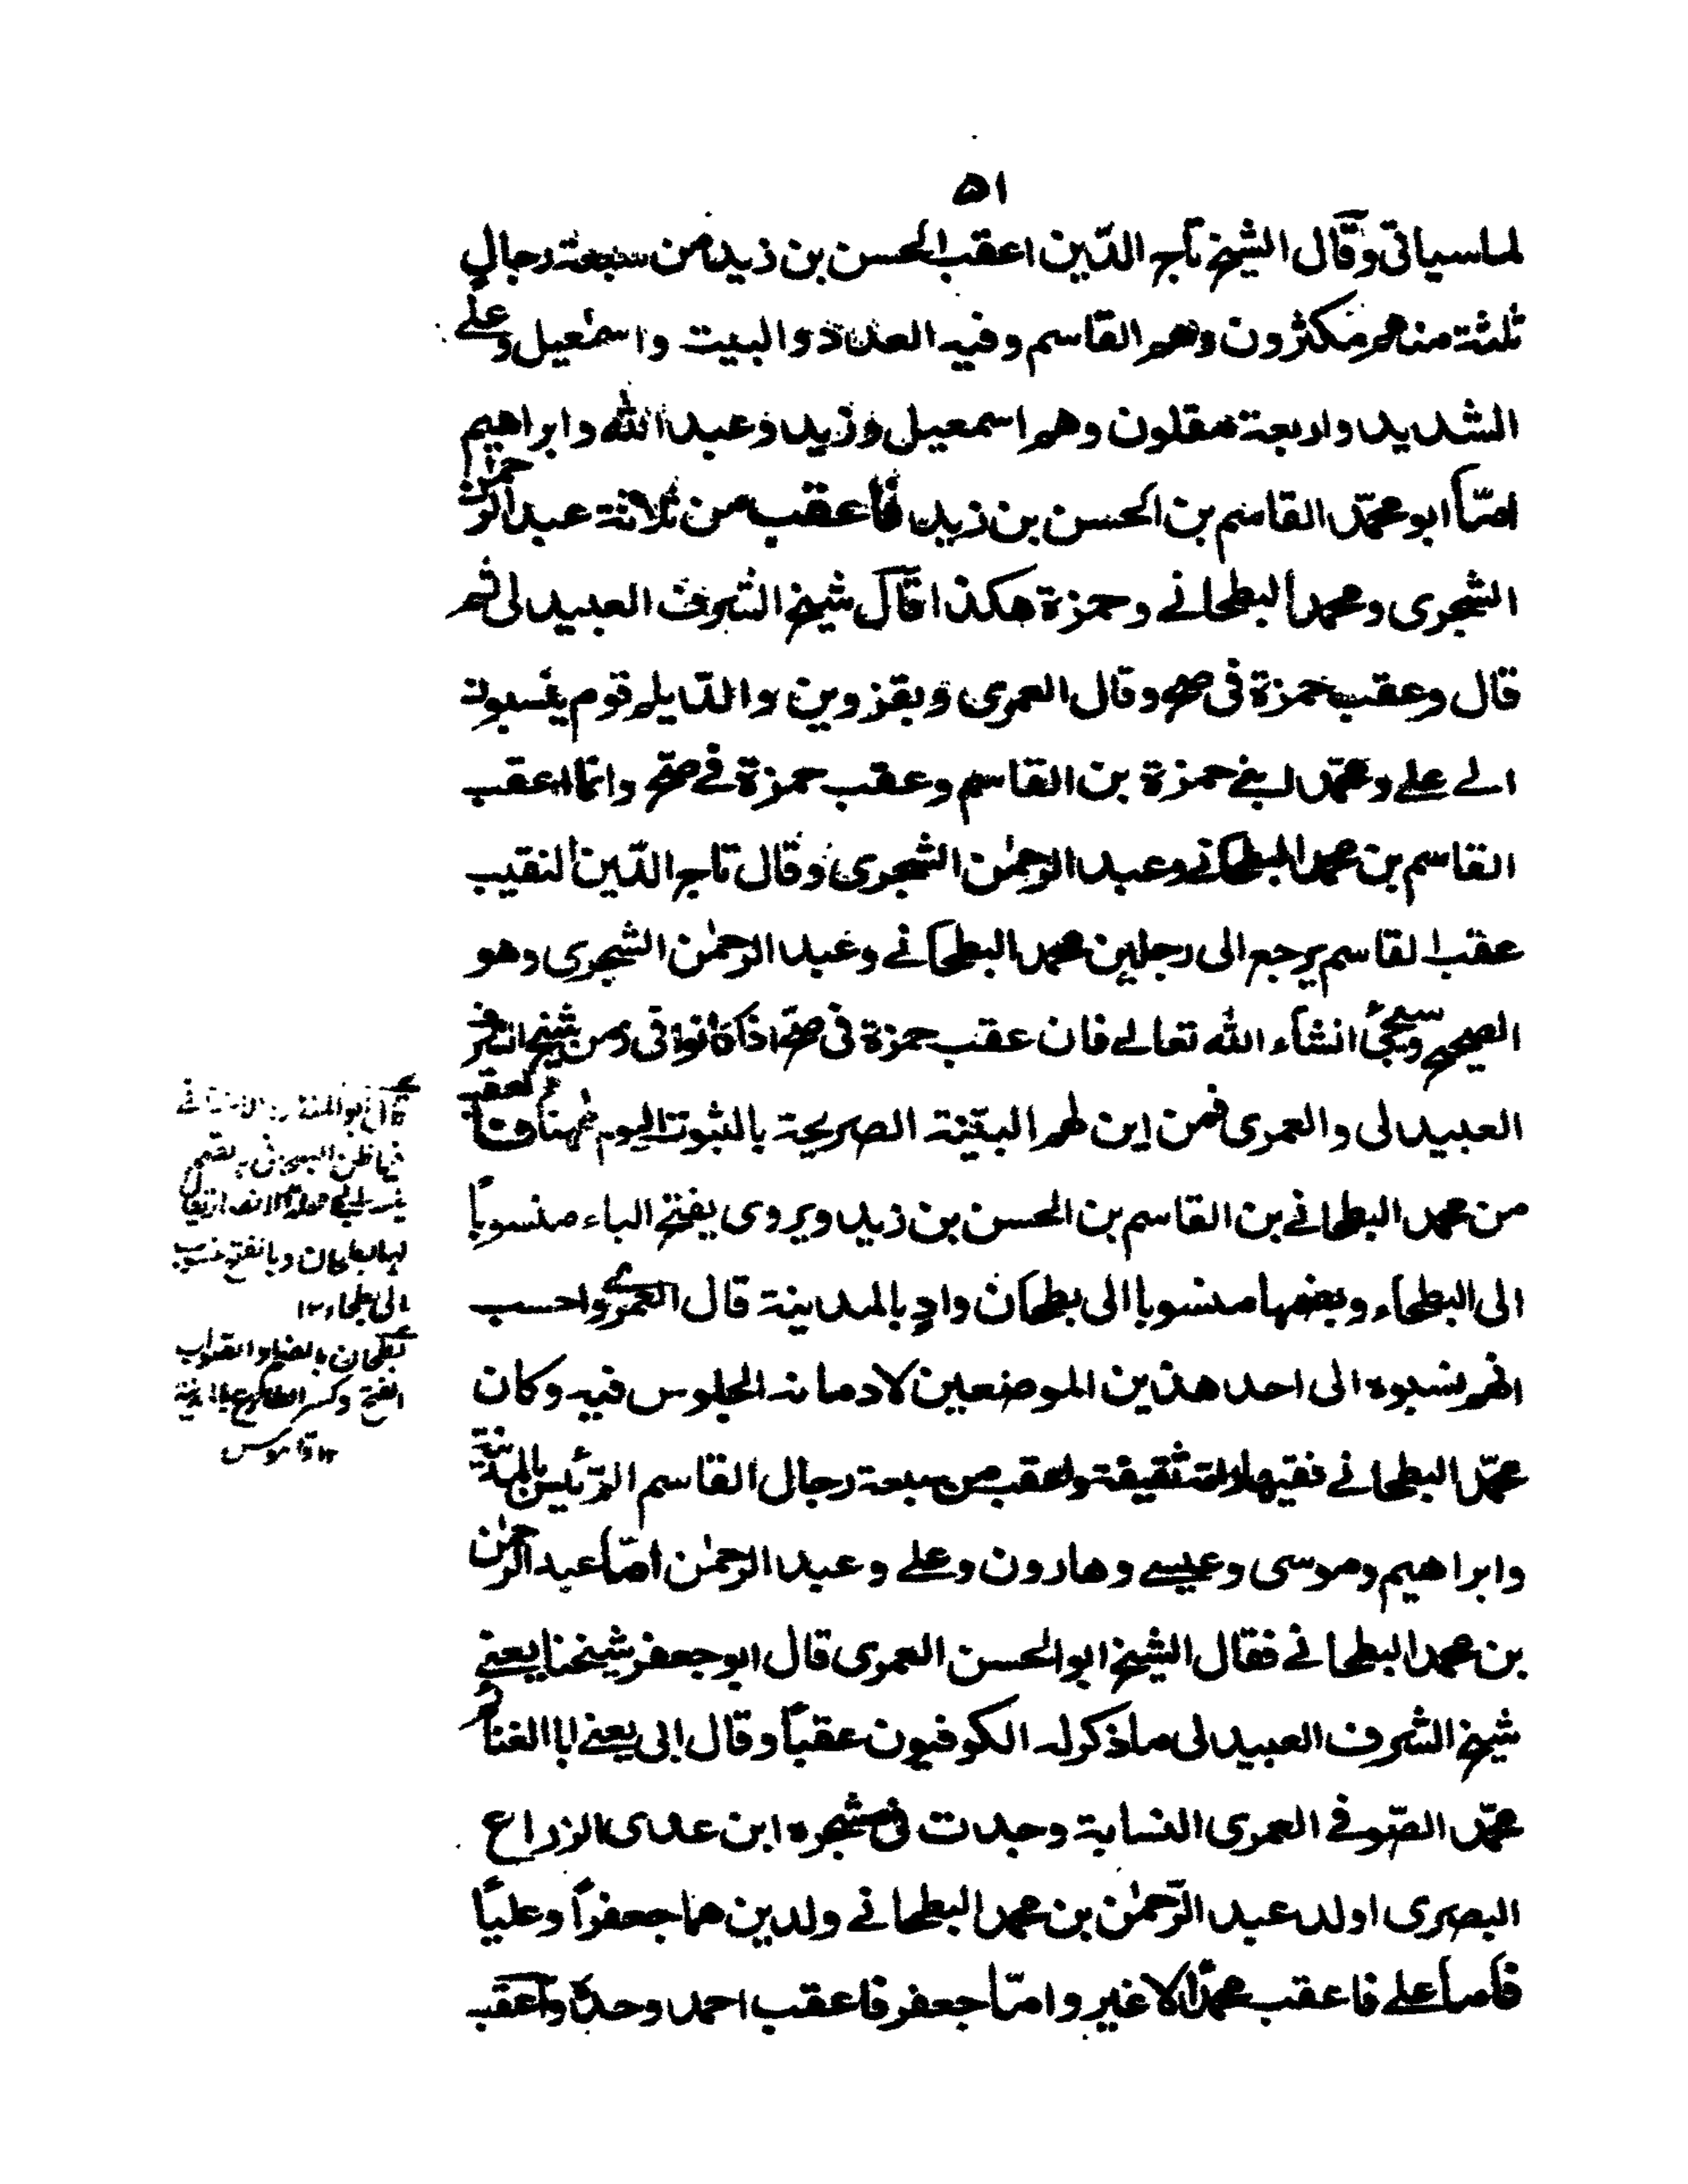 ٥١
لما سياتى وقال الشيخ تاج الدّين اعقب الحسن بن زيد من سبعة رجال
ثلثة منهم مكثرون وهم القاسم وفيه العدد والبيت واسمٰعيل وعلے
الشديد واربعة مقلون وهم اسمعيل وزيد وعبد الله وابراهيم
امّا ابو محمّد القاسم بن الحسن بن زيد فاعقب من ثلاثة عبد الرحمٰن
الشجرى ومحمد البطحانے وحمزة هكذا قال شيخ الشرف العبيدلى ثم
قال وعقب حمزة فى صح وقال العمرى وبقزوين والدّيلم قوم ينسبون
الے علے ومحمّد ابنے حمزة بن القاسم وعقب حمزة فے صحّ وانما اعقب
القاسم بن محمد البطحانے وعبد الرحمٰن الشجرى وقال تاج الدّين النقيب
عقب القاسم يرجع الى رجلين محمد البطحانے وعبد الرحمٰن الشجرى وهو
الصحيح وسيجئ انشاء الله تعالے فان عقب حمزة فى صحّ اذ كانوا فى زمن شيخ الشرف
العبيدلى والعمرى فمن اين لهم البيّنة الصريحة بالثبوت اليوم فههنا
من محمد البطحانے بن القاسم بن الحسن بن زيد ويروى بفتح الباء منسوباً
الى البطحاء وبضمها منسوبا الى بطحان وادٍ بالمدينة قال العمرے واحسب
انهم نسبوه الى احد هذين الموضعين لادمانه الجلوس فيه وكان
محمّد البطحانے فقيها واعقب من سبعة رجال القاسم الرئيس بالمدينة
وابراهيم وموسى وعيسے وهارون وعلے وعبد الرحمٰن امّا عبد الرحمٰن
بن محمد البطحانے فقال الشيخ ابو الحسن العمرى قال ابو جعفر شيخنا يعنے
شيخ الشرف العبيدلى ما ذكر له الكوفيون عقباً وقال ابى يعنے ابا الغنائم
محمّد الصّوفے العمرى النسابة وجدت فى مشجره ابن عدى الزراع
البصرى اولد عبد الرّحمٰن بن محمد البطحانے ولدين هما جعفراً وعلياً
فاما علے فاعقب محمّدا لا غير وامّا جعفر فاعقب احمد وحده واعقب
لها البطحان وبالفتح منسوب
الى بطحاء ١٢
بطحان بالضم او الصواب
الفتح وكسر الطاء
١٢ قاموس